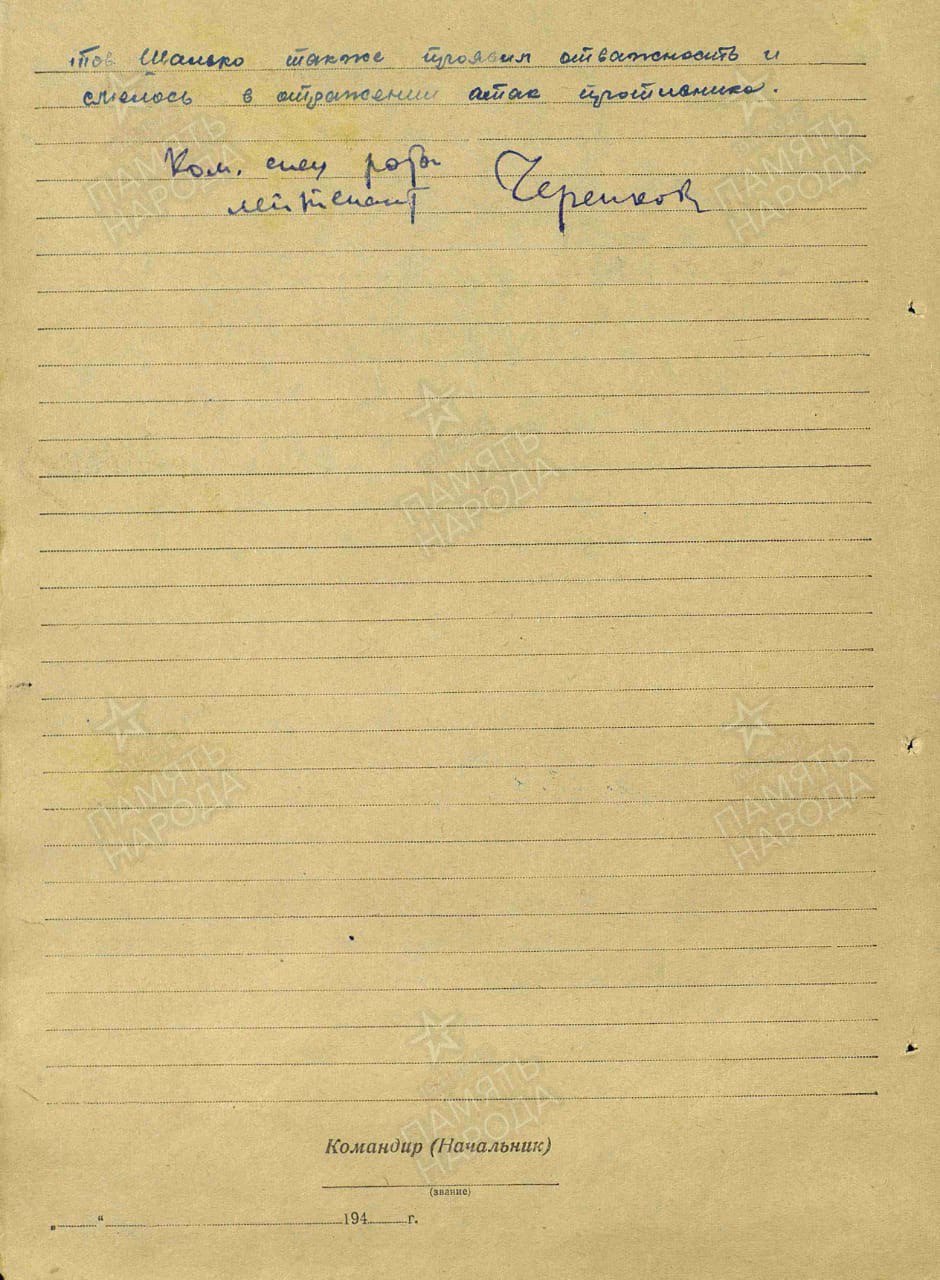 тов Шалько также проявил отважность и
смелось в отражении атак противника.
Ком. спец роты
лейтенант Черенков
ПАМЯТЬ
НАРОДА
ПАМЯТЬ
НАРОДА
ПАМЯТЬ
НАРОДА
ПАМЯТЬ
НАРОДА
ПАМЯТЬ
НАРОДА
ПАМЯТЬ
НАРОДА
Командир (Начальник)
(звание)
„ “ 194 г.